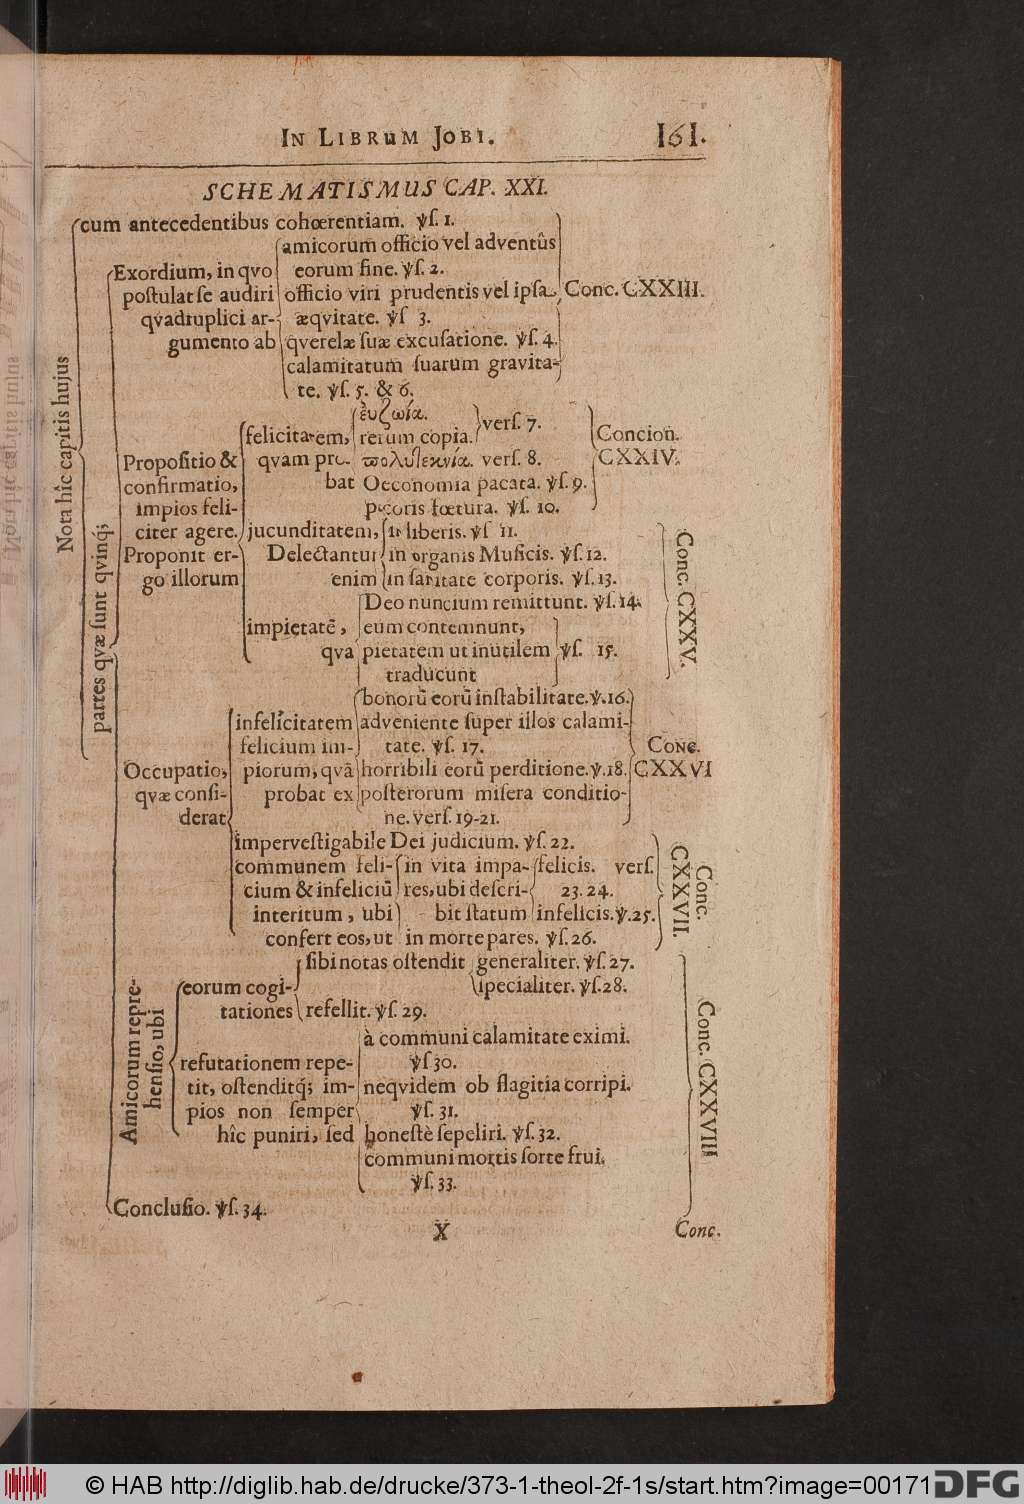 IN LIBRUM JOBI. 161.
SCHEMATISMUS CAP. XXI.
Nota hîc capitis hujus
cum antecedentibus cohœrentiam. ℣ſ. 1.
partes qvæ ſunt qvinq́;
amicorum officio vel adventûs
Exordium, in qvo eorum fine. ℣ſ. 2.
poſtulat ſe audiri officio viri prudentis vel ipſa Conc. CXXIII.
qvadruplici ar- æqvitate. ℣ſ 3.
gumento ab qverelæ ſuæ excuſatione. ℣ſ. 4.
calamitatum ſuarum gravita-
te. ℣ſ. 5. & 6.
ἐυζωία.
felicitatem, rerum copia. verſ. 7. Concion.
Propoſitio & qvam pro- πολυτεκνία. verſ. 8. CXXIV.
confirmatio, bat Oeconomia pacata. ℣ſ. 9.
impios feli- pecoris fœtura. ℣ſ. 10.
citer agere. jucunditatem, in liberis. ℣ſ 11.
Proponit er- Delectantur in organis Muſicis. ℣ſ. 12.
go illorum enim in ſanitate corporis. ℣ſ. 13.
Deo nuncium remittunt. ℣ſ. 14.
impietatē, eum contemnunt,
qva pietatem ut inutilem ℣ſ. 15.
traducunt
Conc. CXXV.
bonorū eorū inſtabilitate. ℣. 16.
infelicitatem adveniente ſuper illos calami-
felicium im- tate. ℣ſ. 17. Conc.
Occupatio, piorum, qvā horribili eorū perditione. ℣. 18. CXXVI
qvæ conſi- probat ex poſterorum miſera conditio-
derat ne. verſ. 19-21.
imperveſtigabile Dei judicium. ℣ſ. 22.
communem feli- in vita impa- felicis. verſ.
cium & infeliciū res, ubi deſcri- 23. 24.
interitum, ubi bit ſtatum infelicis. ℣. 25.
confert eos, ut in morte pares. ℣ſ. 26.
Conc.
CXXVII.
Amicorum repre-
henſio, ubi
ſibi notas oſtendit generaliter. ℣ſ. 27.
eorum cogi- ſpecialiter. ℣ſ. 28.
tationes refellit. ℣ſ. 29.
à communi calamitate eximi.
refutationem repe- ℣ſ 30.
tit, oſtenditq́; im- neqvidem ob flagitia corripi.
pios non ſemper ℣ſ. 31.
hîc puniri, ſed honeſtè ſepeliri. ℣ſ. 32.
communi mortis ſorte frui.
℣ſ. 33.
Conc. CXXVIII
Concluſio. ℣ſ. 34.
X Conc.
© HAB http://diglib.hab.de/drucke/373-1-theol-2f-1s/start.htm?image=00171 DFG